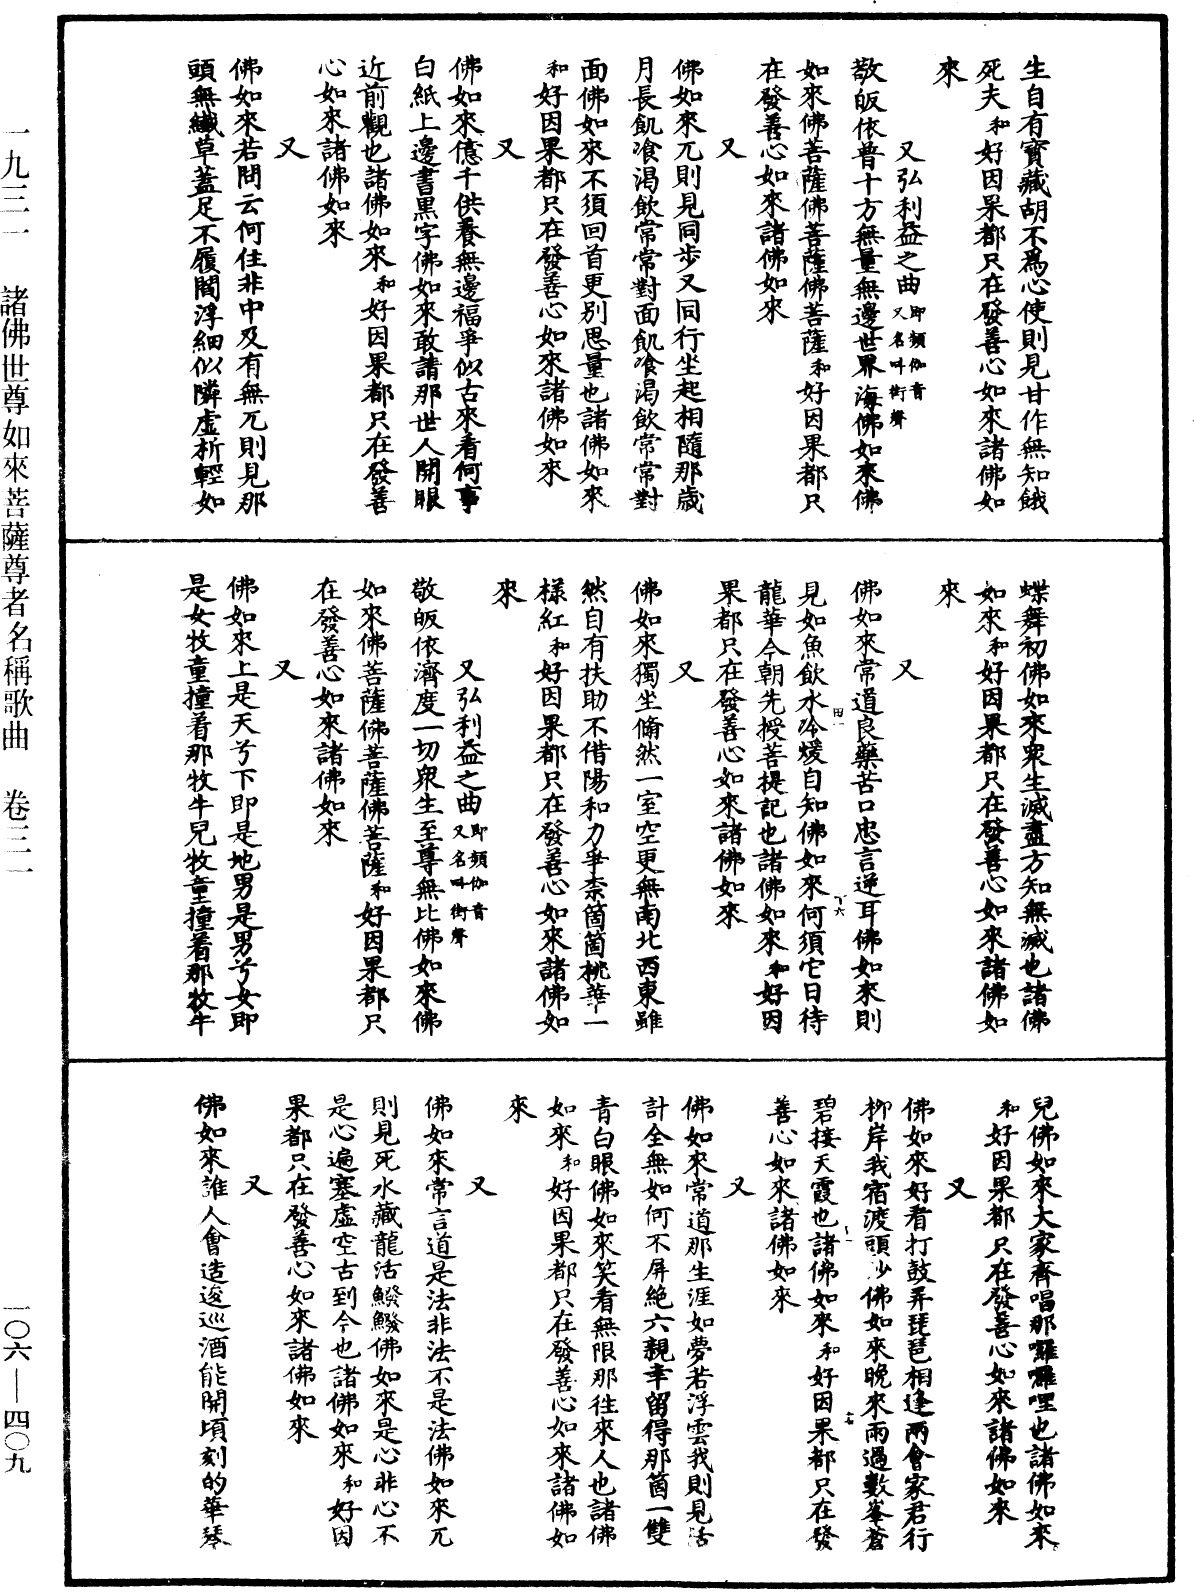 生自有寶藏胡不爲心使則見甘作無知餓
死夫和好因果都只在發善心如來諸佛如
來
又弘利益之曲即頻伽音又名叫街聲
敬皈依普十方無量無邊世界海佛如來佛
如來佛菩薩佛菩薩佛菩薩和好因果都只
在發善心如來諸佛如來
又
佛如來兀則見同步又同行坐起相隨那歲
月長飢飡渴飲常常對面飢飡渴飲常常對
面佛如來不須回首更別思量也諸佛如來
和好因果都只在發善心如來諸佛如來
又
佛如來億千供養無邊福爭似古來看何事
白紙上邊書黑字佛如來敢請那世人開眼
近前觀也諸佛如來和好因果都只在發善
心如來諸佛如來
又
佛如來若問云何住非中及有無兀則見那
頭無纖草蓋足不履閻浮細似隣虛析輕如
蝶舞初佛如來衆生滅盡方知無滅也諸佛
如來和好因果都只在發善心如來諸佛如
來
又
佛如來常道良藥苦口忠言逆耳佛如來則
見如魚飲水冷煖自知佛如來何須它日待
龍華今朝先授菩提記也諸佛如來和好因
果都只在發善心如來諸佛如來
又
佛如來獨坐翛然一室空更無南北西東雖
然自有扶助不借陽和力爭柰箇箇桃華一
樣紅和好因果都只在發善心如來諸佛如
來
又弘利益之曲即頻伽音又名叫街聲
敬皈依濟度一切衆生至尊無比佛如來佛
如來佛菩薩佛菩薩佛菩薩和好因果都只
在發善心如來諸佛如來
又
佛如來上是天兮下即是地男是男兮女即
是女牧童撞着那牧牛兒牧童撞着那牧牛
兒佛如來大家齊唱那囉囉哩也諸佛如來
和好因果都只在發善心如來諸佛如來
又
佛如來好看打鼓弄琵琶相逢兩會家君行
柳岸我宿渡頭沙佛如來晚來雨過數峯蒼
碧接天霞也諸佛如來和好因果都只在發
善心如來諸佛如來
又
佛如來常道那生涯如夢若浮雲我則見活
計全無如何不屏絶六親幸留得那箇一雙
青白眼佛如來笑看無限那往來人也諸佛
如來和好因果都只在發善心如來諸佛如
來
又
佛如來常言道是法非法不是法佛如來兀
則見死水藏龍活鱍鱍佛如來是心非心不
是心遍塞虛空古到今也諸佛如來和好因
果都只在發善心如來諸佛如來
又
佛如來誰人會造逡巡酒能開頃刻的華琴
一九三一 諸佛世尊如來菩薩尊者名稱歌曲 卷三一
一〇六—四〇九